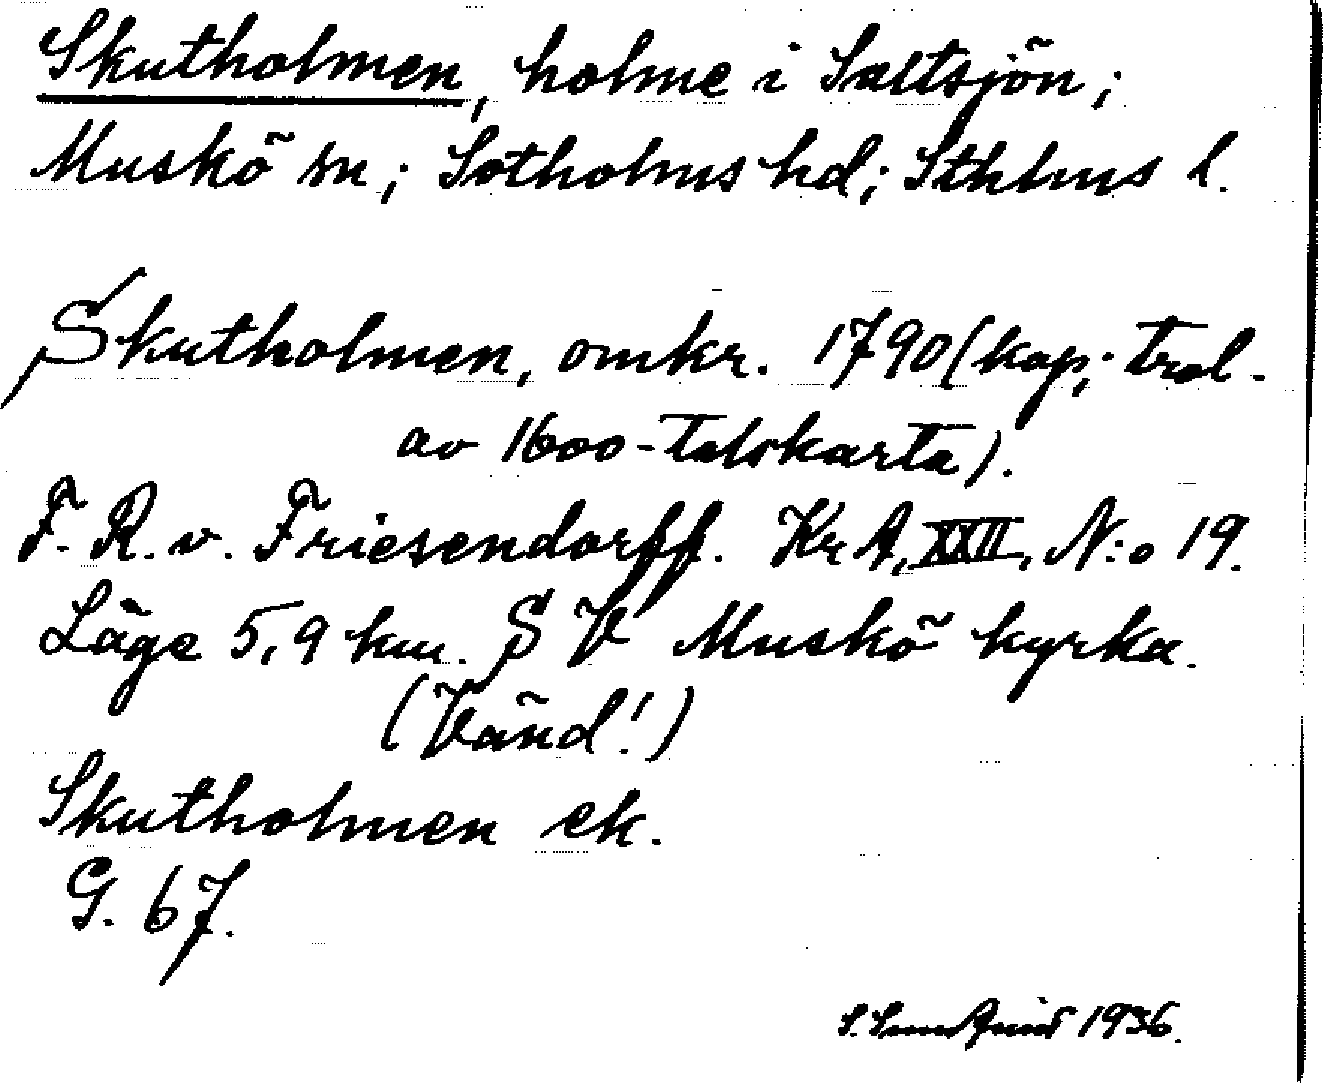 Skutholmen, holme i Saltsjön;
Muskö sn; Sotholms hd; Sthlms l.
Skutholmen, omkr. 1790 (kop; trol.
av 1600-talskarta).
F. R. v. Friesendorff. Kr A, XXII, N:o 19.
Läge 5,9 km. SV Muskö kyrka.
(Vänd!)
Skutholmen ek.
G. 67.
S. Sundquist 1936.